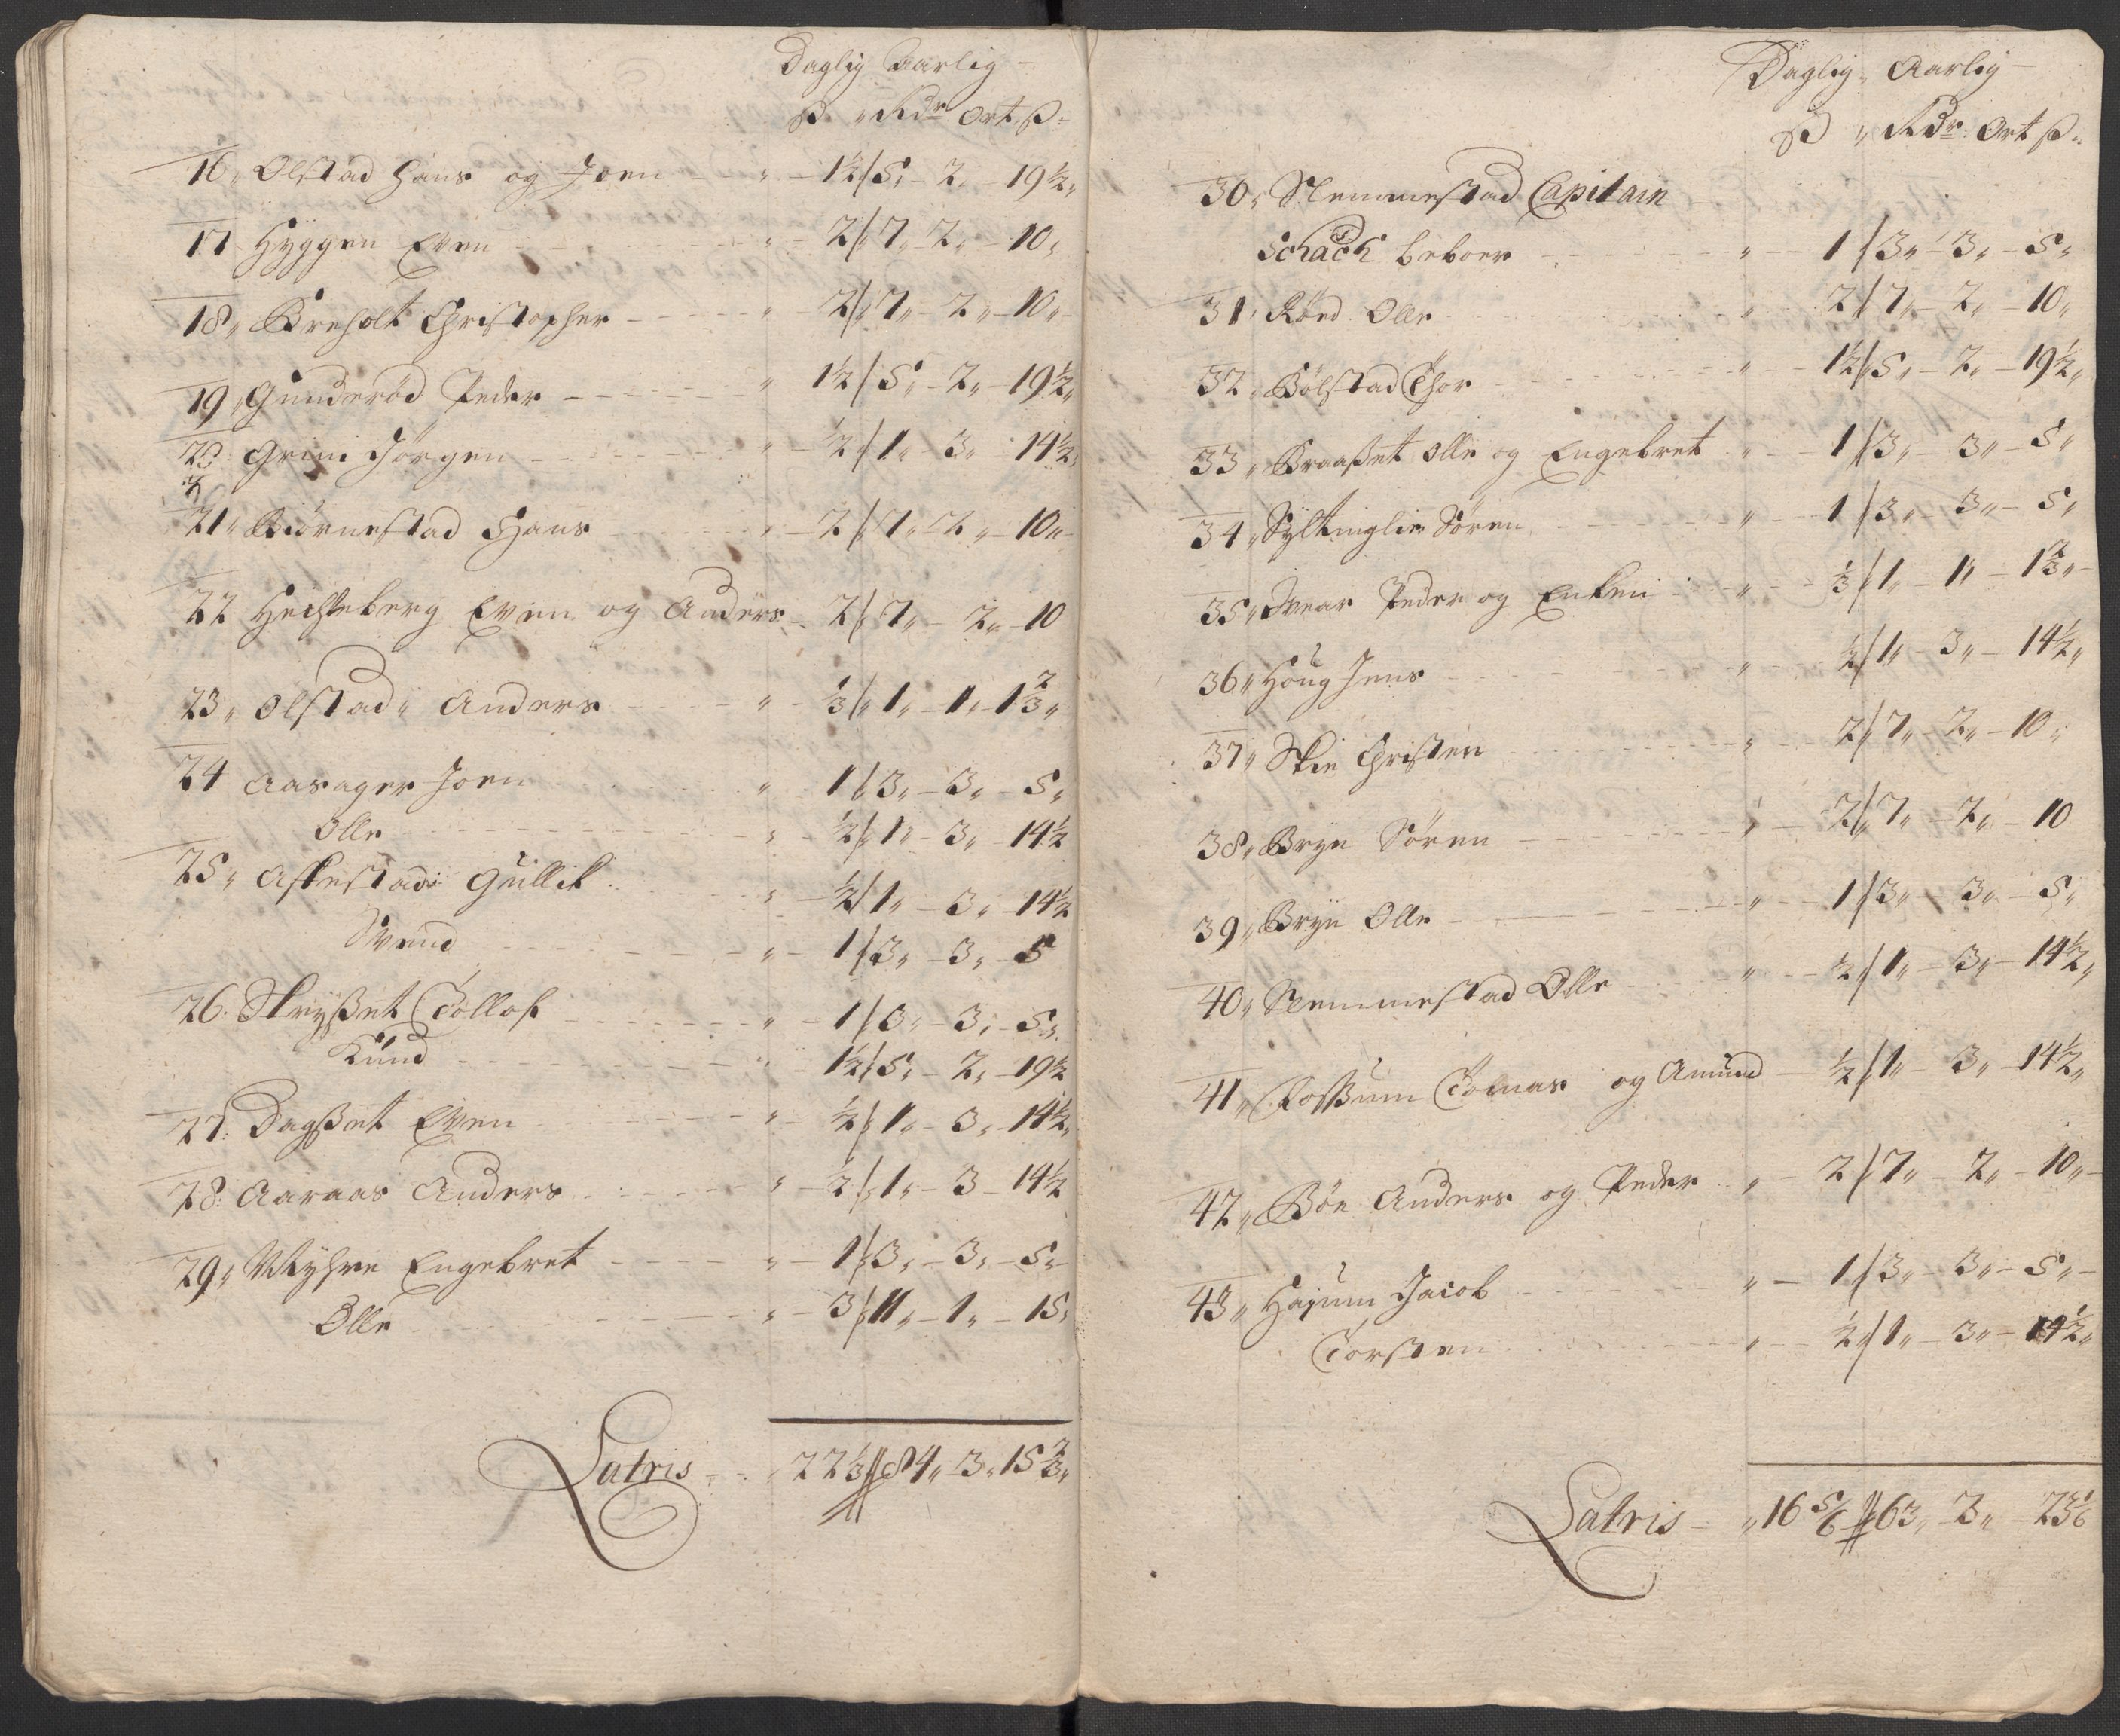 Daglig Aarlig -
ß. " Rdr Ort ß.
16. Olstad Hans og Joen - " - 1½ / 5. - 2. - 19½.
17 Hyggen Even - " - 2 / 7. 2. - 10.
18. Kreholt Christopher - " 2 / 7. - 2. - 10.
19. Gunderød Peder - " 1½ / 5. - 2. - 19½.
20. Grini Jörgen - " - ½ / 1. - 3. 14½.
21. Biörnestad Hans - " - 2 / 7. - 2. - 10.
22 Hechleberg Even og Anders - 2 / 7. - 2. - 10
23. Olstad. Anders - " - ⅓ / 1. - 1. - 1⅔.
24 Aasager Joen " - 1 / 3. - 3. - 5.
Olle - " - ½ / 1. - 3. 14½
25. Askestad Gullik - " - ½ / 1. - 3. - 14½
Svend - " - 1 / 3. - 3. - 5
26. Skryßet Tollof - " - 1 / 3. - 3. - 5.
Knud - " - 1½ / 5. - 2. - 19½
27. Dagßet Even - " - ½ / 1. - 3. - 14½.
28. Aaraas Anders - " - ½ / 1. - 3 - 14½
29. Myhre Engebret - " - 1 / 3. - 3. - 5.
Olle - " - 3 / 11. - 1. - 15.
Latris - 22⅓ // 84. - 3. 15⅔.
Daglig. Aarlig -
ß " Rdr. Ort ß.
30. Nemmestad Capitain
Schach beboer - " - 1 / 3. - 3. - 5.
31. Röed Olle - " 2 / 7. - 2. - 10.
32. Bölstad Thor - " - 1½ / 5. - 2. - 19½.
33. Braaßet Olle og Engebret " - 1 / 3. - 3. - 5.
34. Syltinglie Sören - " - 1 / 3. - 3. - 5.
35. Ovear Peder og Enken - " - ⅓ / 1. - 1. - 1⅔.
36. Houg Jens - " - ½ / 1. - 3. - 14½.
37. Skie Christen - " 2 / 7. - 2. - 10.
38. Bryn Sören - " - 2 / 7. - 2. - 10
39. Bryn Olle - " - 1 / 3. - 3. - 5.
40. Nemmestad Olle " - ½ / 1. - 3. - 14½.
41. Foßum Tomas og Amund - ½ / 1. - 3. - 14½.
42. Böe Anders og Peder " - 2 / 7. - 2. - 10. -
43. Hajum Jacob - " - 1 / 3. - 3. - 5. -
Torsten - " ½ / 1. - 3. - 14½.
Latris - " 16⅚ // 63. - 3. - 23⅙